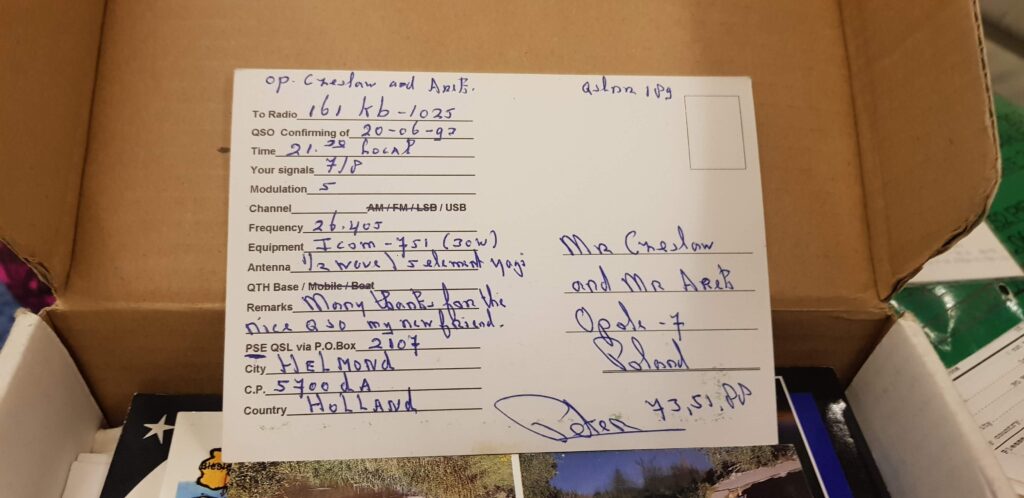 op. Czeslaw and Arek.
QSLnr 189
To Radio 161 kb-1025
QSO Confirming of 20-06-92
Time 21.30 Local
Your signals 7/8
Modulation 5
Channel AM / FM / LSB / USB
Frequency 26.405
Equipment Icom-751 (30w)
Antenna 1/2 wave / 5 element yagi
QTH Base / Mobile / Boat
Remarks Many thanks for the
nice QSO my new friend.
PSE QSL via P.O.Box 2107
City HELMOND
C.P. 5700 dA
Country HOLLAND
Mr Czeslaw
and Mr Arek
Opole -7
Poland
73,51,88
Peter